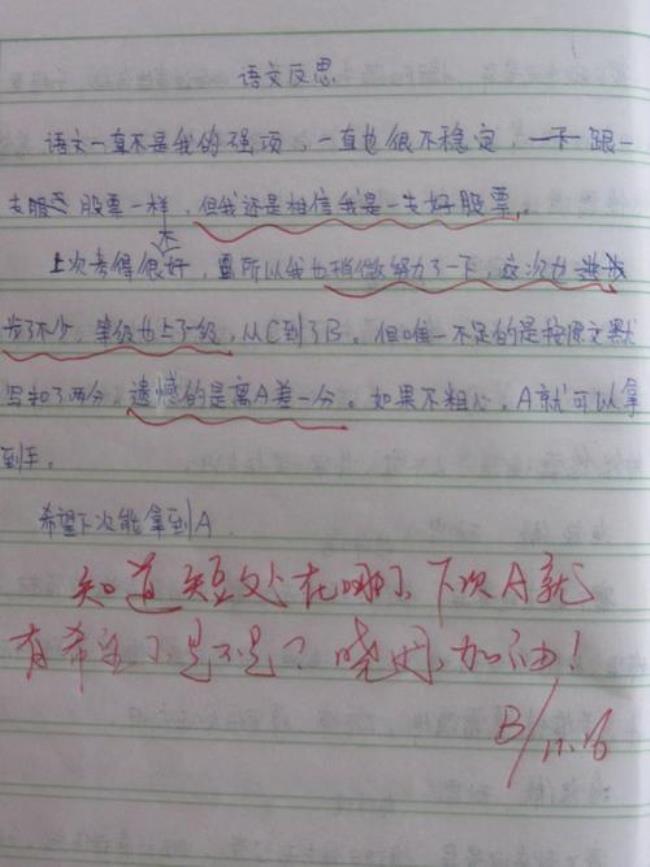 语文反思
语文一直不是我的强项，一直也很不稳定，跟一
支股票一样，但我还是相信我是一支好股票。
上次考得很不好，所以我也稍微努力了一下，这次也进
步了不少，等级也上了一级，从C到了B。但唯一不足的是按原文默
写扣了两分，遗憾的是离A差一分。如果不粗心，A就可以拿
到手。
希望下次能拿到A
知道短处在哪了，下次A就
有希望了是不是？晓，加油！
B/11.16